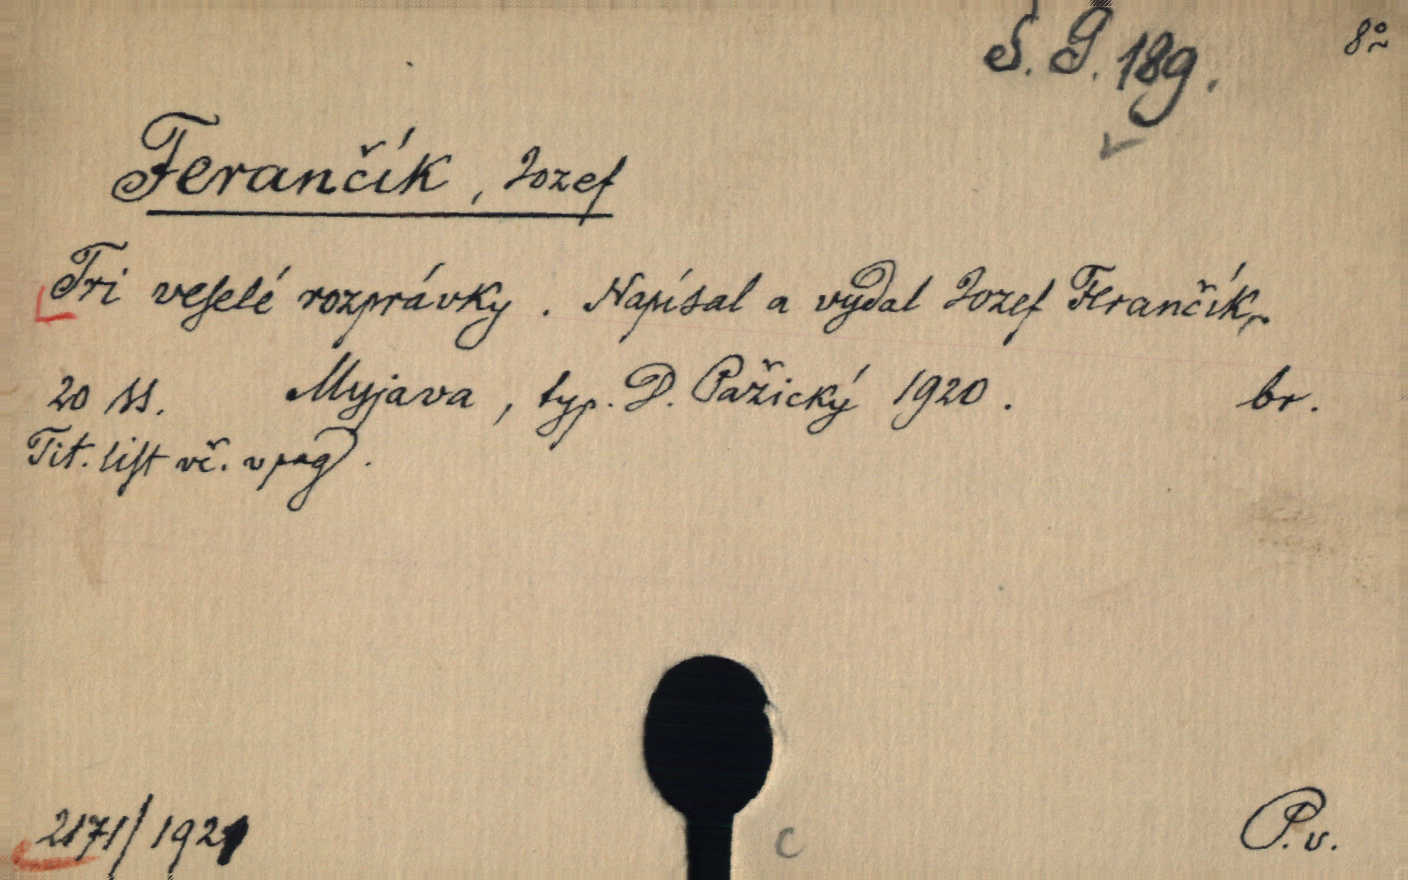 S. G. 189.
8°
Ferančík, Jozef
Tri veselé rozprávky. Napísal a vydal Jozef Ferančík.
20 ss. Myjava, typ. D. Pažický 1920. br.
Tit. list vč. v pag.
2171/1921
c
P. v.